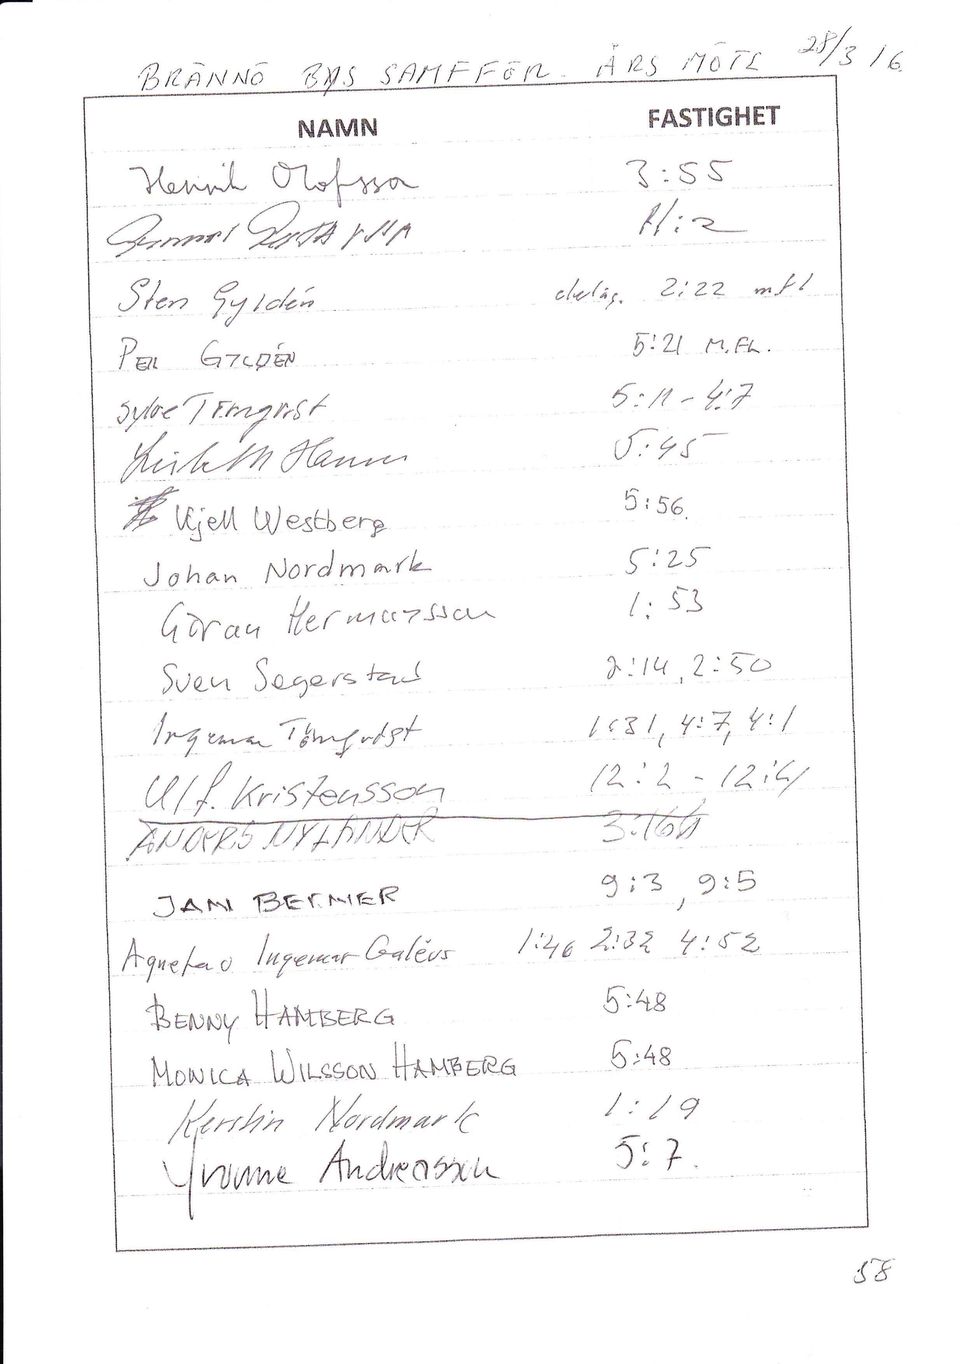 BRÄNNÖ BYS SAMFFÖR. ÅRS MÖTE 28/3 16
NAMN FASTIGHET
Henrik Olofsson 3:55
11:2
Sten Gyldén deläg. 2:22 mfl
PER GYLDÉN 5:21 M.FL.
Sylve Törnqvist 5:11 - 4:7
5:45
Kjell Westberg 5:56
Johan Nordmark 5:25
Göran Hermansson 1:53
Sven Segerstad 2:14, 2:50
Ingemar Törnqvist 1:31, 4:7, 4:1
Ulf. Kristensson 12:2 - 12:4
ANDERS NYLANDER
JAN BERNER 9:3, 9:5
Agneta o Ingemar Galéus 1:46 2:32 4:52
BENNY HAMBERG 5:48
MONICA WILSSON HAMBERG 5:48
Kerstin Nordmark 1:19
Yvonne Andreasson 5:7.
58